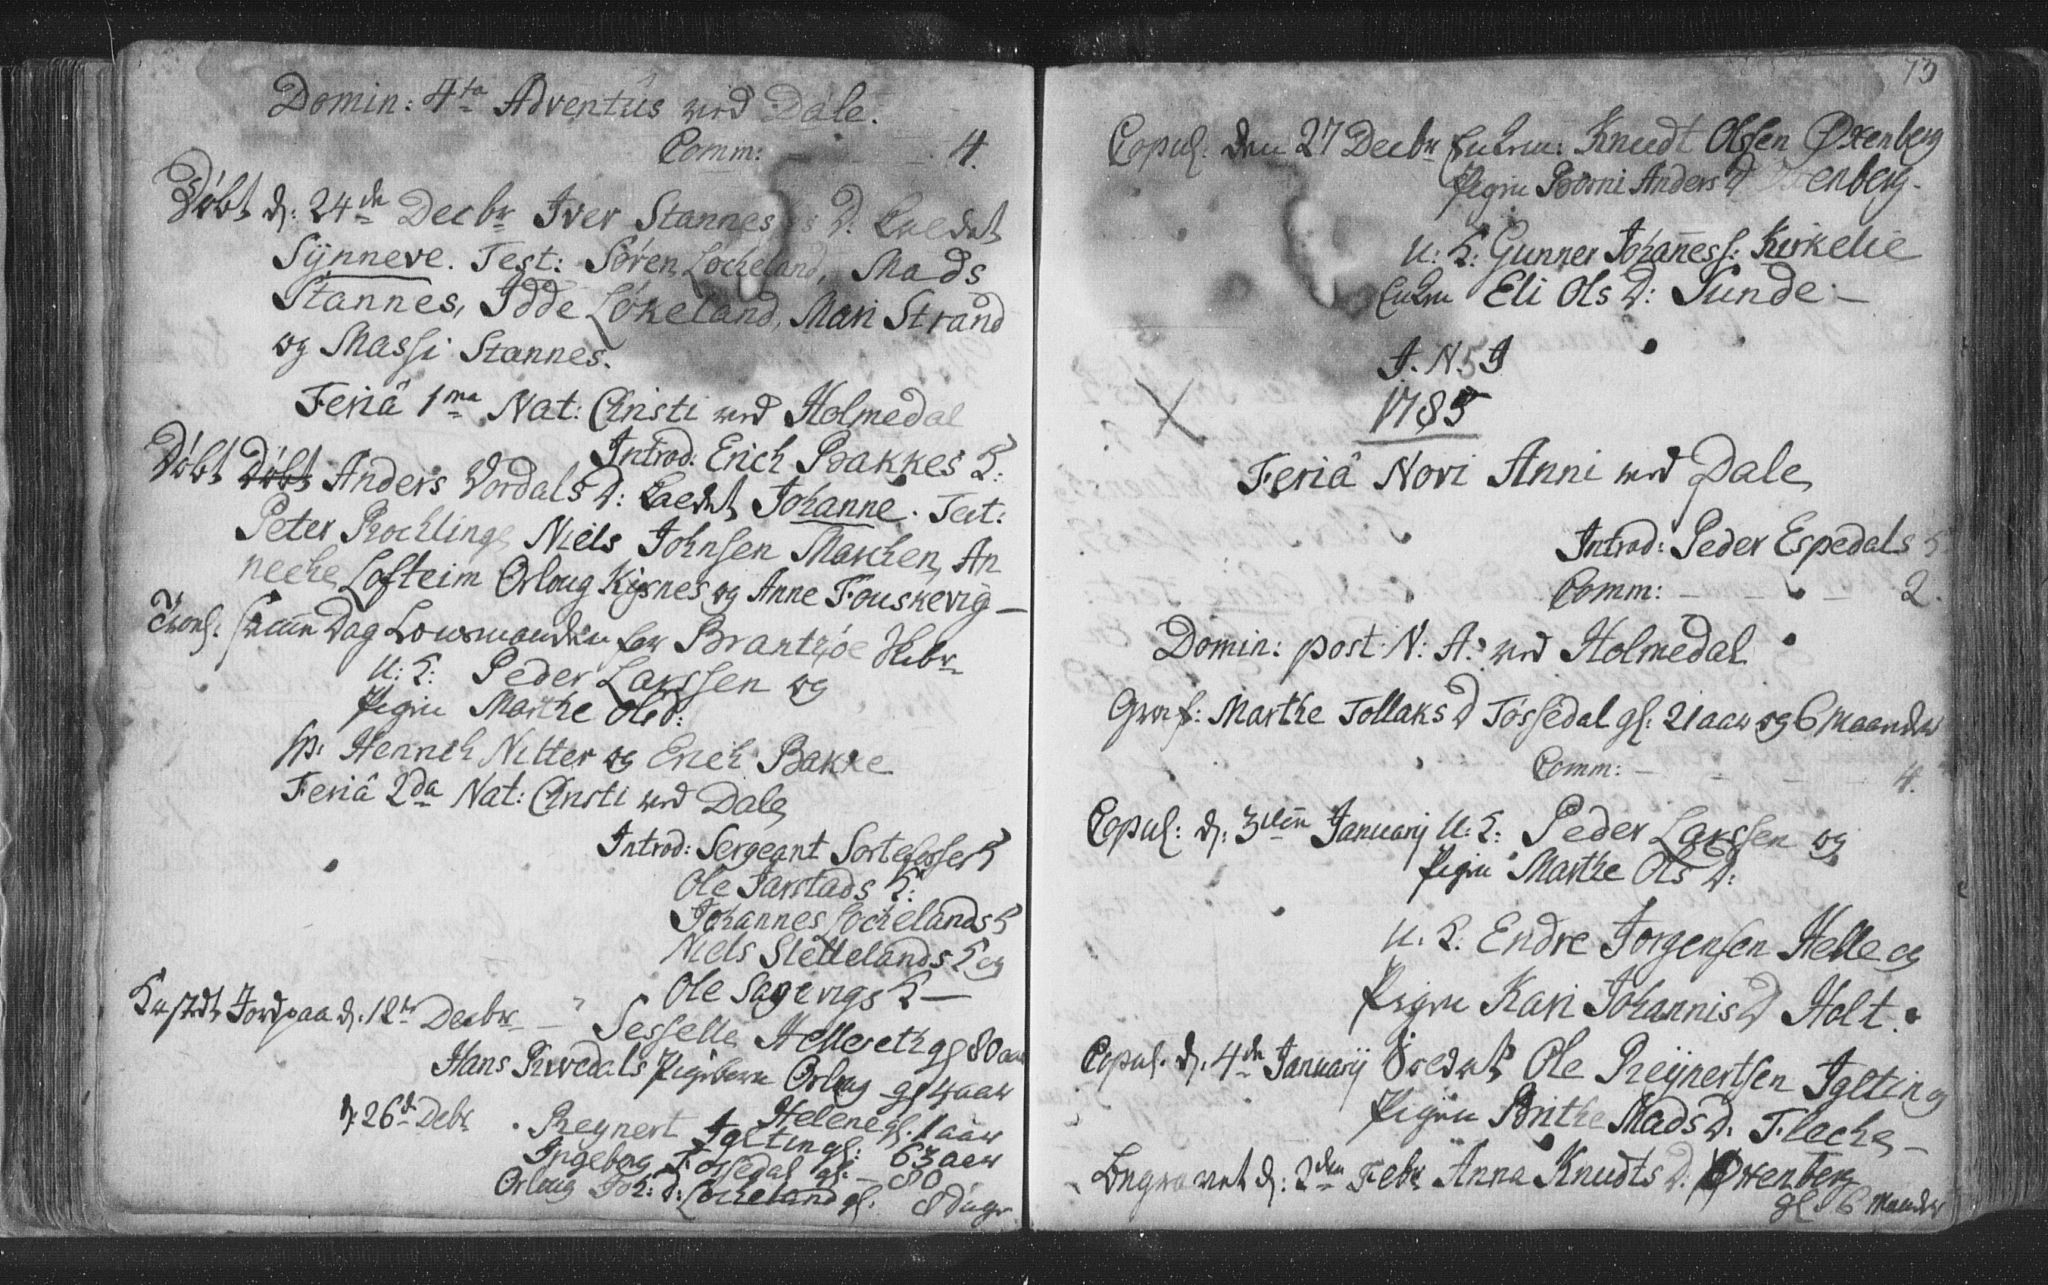 Domin: 4ta Adventûs ved Dale.
Comm: 4.
Døbt d: 24de Decbr Iver Stannes D. kaldet
Sÿnneve. Test: Søren Locheland, Mads
Stannes, Idde Løkeland, Mari Strand
og Massi Stannes.
Feriâ 1ma Nat: Christi ved Holmedal
Introd: Erich Bakkes K:
Døbt Døbt Anders Vordals D: kaldet Johanne. Test:
Peter Rochling Niels Johnsen Marchen, An
neche Lofteim Orloug Kysnes og Anne Fouskevig
Trol: samme Dag Lonsmanden for Brantzøe
U: K: Peder Larssen og
Pigen Marthe Olsd:
sp: Henrich Nitter og Erich Bakke
Feriâ 2da Nat: Christi ved Dale
Introd: Sergeant K
Ole Jarstads K:
Johannes Lochelands K
Niels Slettelands K og
Ole Sagevigs K
Kastet Jord paa d. 12te Decbr Sesselle Hellereth gl 80 aar
Hans Rivedals Pigebørn Orloug gl 4 aar
Helene gl. 1 aar
d 26de Debr Reynert Igelting gl: 63 aar
Ingeborg Tossedal gl: 80
Orloug Joh: d: Locheland gl. 8 dage
73
Copul: den 27 Decbr Enkem: Knudt Olssen Oxenberg
Pigen Borni Anders D Oxenberg
U: K: Gunner Johaness: Kirkelie
Enken Eli Ols D: Sunde
I. N. J
1785
Feriâ Novi Anni ved Dale
Introd: Peder Espedals K
Comm: 2.
Domin: post N: A: ved Holmedal
Gravf: Marthe Tollaks D Tossedal gl: 21 aar og 6 Maander
Comm: 4.
Copul: d: 3den Januarij U: K: Peder Larssen og
Pigen Marthe Ols D:
U. K: Endre Jorgensen Helle og
Pigen Kari Johannis D Holt.
Copul. d. 4de Januarij Ole Reÿnertsen Igelting
Pigen Brithe Mads D. Fleche
Begravet d: 2den Febr Anna Knudts D. Oxenberg
gl 6 Maander